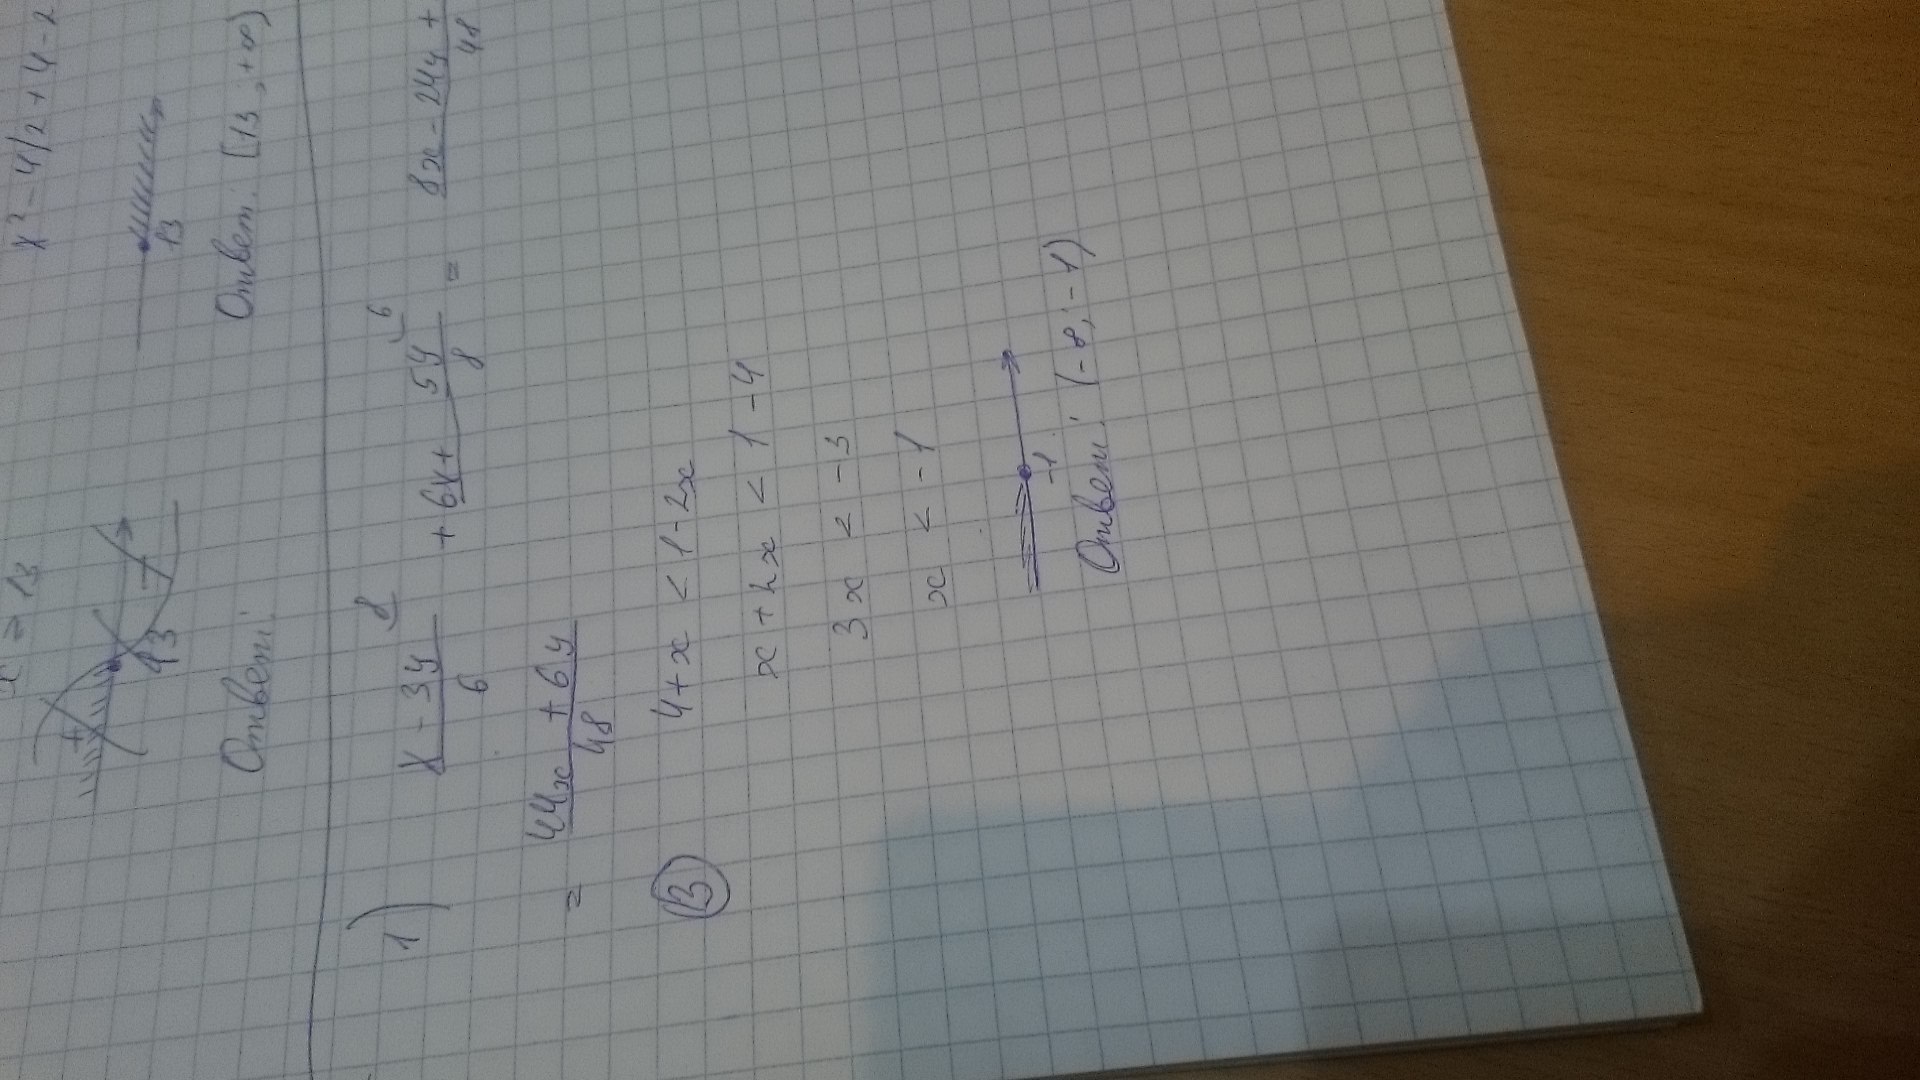 x ≥ 13
x² - 4/2 + 4 - 2
+ 13 -
13
Ответ:
Ответ: [13 ; +∞)
1) (x - 3y)/6 + (6x + 5y)/8 = (8x - 24y +)/48
= (44x + 6y)/48
③ 4 + x < 1 - 2x
x + 2x < 1 - 4
3x < -3
x < -1
-1
Ответ: (-∞; -1)